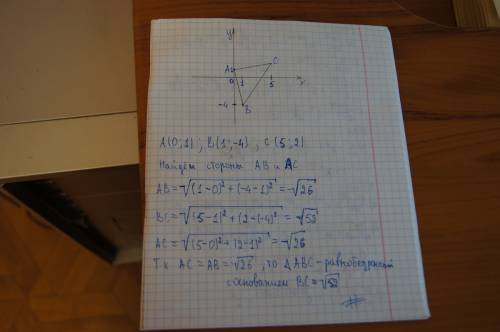 y
C
A
0 1 5 x
-4 B
A(0;1) ; B(1;-4) , C(5;2)
Найдём стороны AB и AC
AB = √(1-0)² + (-4-1)² = √26
BC = √(5-1)² + (2-(-4))² = √52
AC = √(5-0)² + (2-1)² = √26
Т.к AC = AB = √26 , то Δ ABC - равнобедренный
с основанием BC = √52